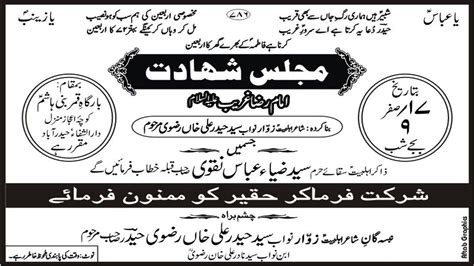 ۷۸۶
یا عباسؑ
یا زینبؑ
شبیرؑ ہیں ہماری رگِ جاں سے بھی قریب
مخصوصیِ اربعین ہم سب کو ہو نصیب
حیدر دعا یہ کرتا ہے اے سرورِ غریب
مل کر وہاں کرینگے بہتر ۷۲ کا اربعین
کرنا ہے فاطمہؑ کے بھرے گھر کا اربعین
مجلس شہادت
امام رضا غریب علیہ السلام
بتاریخ
۱۷ صفر
۹
بجے شب
بمقام:
بارگاہِ قمر بنی ہاشمؑ
کوچۂ اعجاز منزل
دارالشفاء حیدرآباد
مقرر ہے
بنا کردہ: شاعر اہلبیتؑ زوّار نواب سید حیدر علی خاں رضوی مرحوم
جسمیں
ذاکر اہلبیتؑ سقائے حرم سید ضیاء عباس نقوی صاحب قبلہ خطاب فرمائیں گے
شرکت فرماکر حقیر کو ممنون فرمائے
چشم براہ
خمسہ گان شاعر اہلبیتؑ زوّار نواب سید حیدر علی خاں رضوی حیدرؔ مرحوم
ابن نواب سید نادر علی خاں رضوی مرحوم
نوٹ: وقت کی پابندی ملحوظ خاطر رہے۔
Aftab Graphics